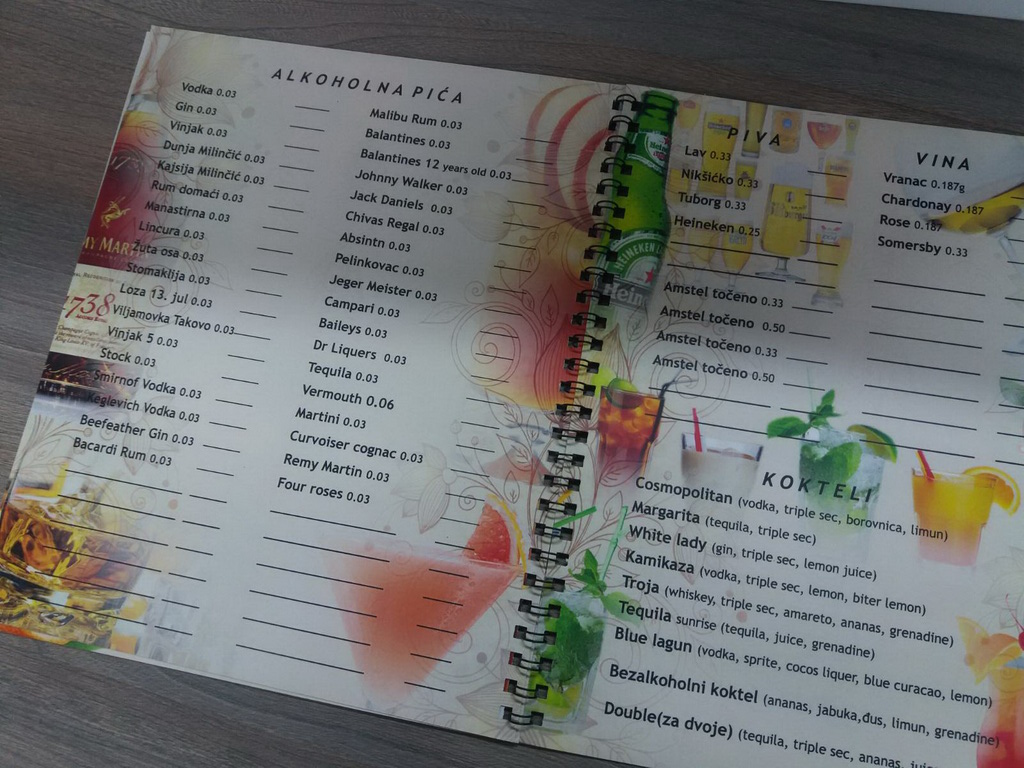 ALKOHOLNA PIĆA
Vodka 0.03
Gin 0.03
Vinjak 0.03
Dunja Milinčić 0.03
Kajsija Milinčić 0.03
Rum domaći 0.03
Manastirna 0.03
Lincura 0.03
Žuta osa 0.03
Stomaklija 0.03
Loza 13. jul 0.03
Viljamovka Takovo 0.03
Vinjak 5 0.03
Stock 0.03
Smirnof Vodka 0.03
Keglevich Vodka 0.03
Beefeather Gin 0.03
Bacardi Rum 0.03
Malibu Rum 0.03
Balantines 0.03
Balantines 12 years old 0.03
Johnny Walker 0.03
Jack Daniels 0.03
Chivas Regal 0.03
Absintn 0.03
Pelinkovac 0.03
Jeger Meister 0.03
Campari 0.03
Baileys 0.03
Dr Liquers 0.03
Tequila 0.03
Vermouth 0.06
Martini 0.03
Curvoiser cognac 0.03
Remy Martin 0.03
Four roses 0.03
MY MAR
738
PIVA
Lav 0.33
Nikšićko 0.33
Tuborg 0.33
Heineken 0.25
Amstel točeno 0.33
Amstel točeno 0.50
Amstel točeno 0.33
Amstel točeno 0.50
HEINEKEN
Hein
VINA
Vranac 0.187g
Chardonay 0.187
Rose 0.187
Somersby 0.33
KOKTELI
Cosmopolitan (vodka, triple sec, borovnica, limun)
Margarita (tequila, triple sec)
White lady (gin, triple sec, lemon juice)
Kamikaza (vodka, triple sec, lemon, biter lemon)
Troja (whiskey, triple sec, amareto, ananas, grenadine)
Tequila sunrise (tequila, juice, grenadine)
Blue lagun (vodka, sprite, cocos liquer, blue curacao, lemon)
Bezalkoholni koktel (ananas, jabuka,đus, limun, grenadine)
Double(za dvoje) (tequila, triple sec, ananas,